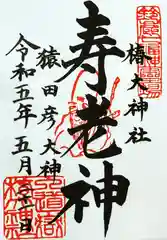 椿大神社
寿老神
猿田彦大神
令和五年五月